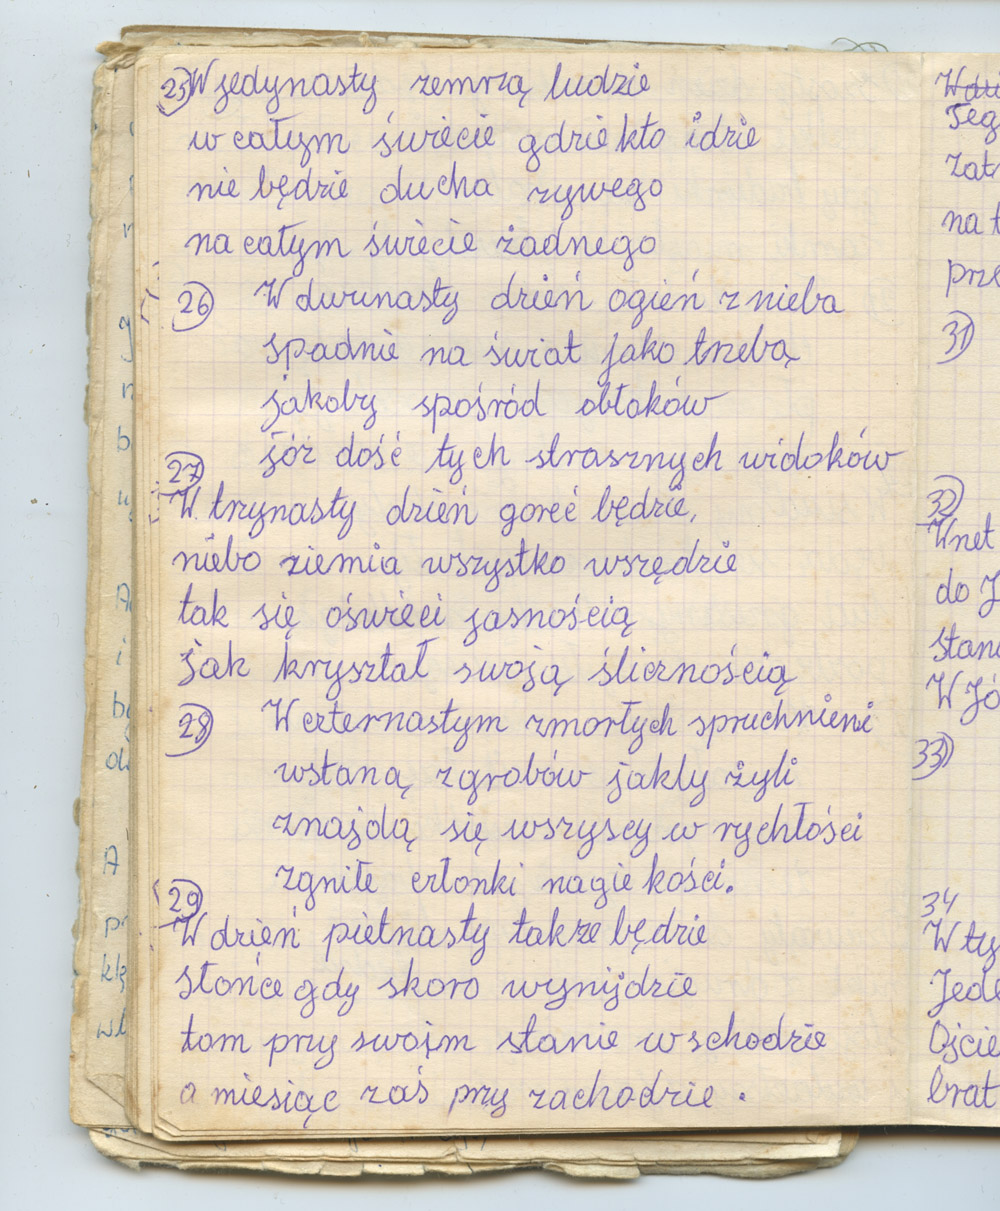 25 W jedynasty zemrzą ludzie
w całym świecie gdzie kto idzie
nie będzie ducha zywego
na całym świecie żadnego
26 W dwunasty dzień ogień z nieba
spadnie na świat jako trzebą
jakoby spośród obłoków
jóż dość tych strasznych widoków
27
W trzynasty dzień goreć będzie,
niebo ziemia wszystko wszędzie
tak się oświeci jasnością
jak kryształ swoją ślicznością
28 W czternastym zmorłych spruchnieni
wstaną z grobów jakly żyli
znajdą się wszyscy w rychłości
zgniłe członki nagie kości.
29
W dzień piętnasty także będzie
słońce gdy skoro wynijdzie
tom przy swojm stanie wschodzie
a miesiąc zaś przy zachodzie.
31
32
Wnet
do J
W Jó
33
34
W ty
Jede
Ojcie
brat